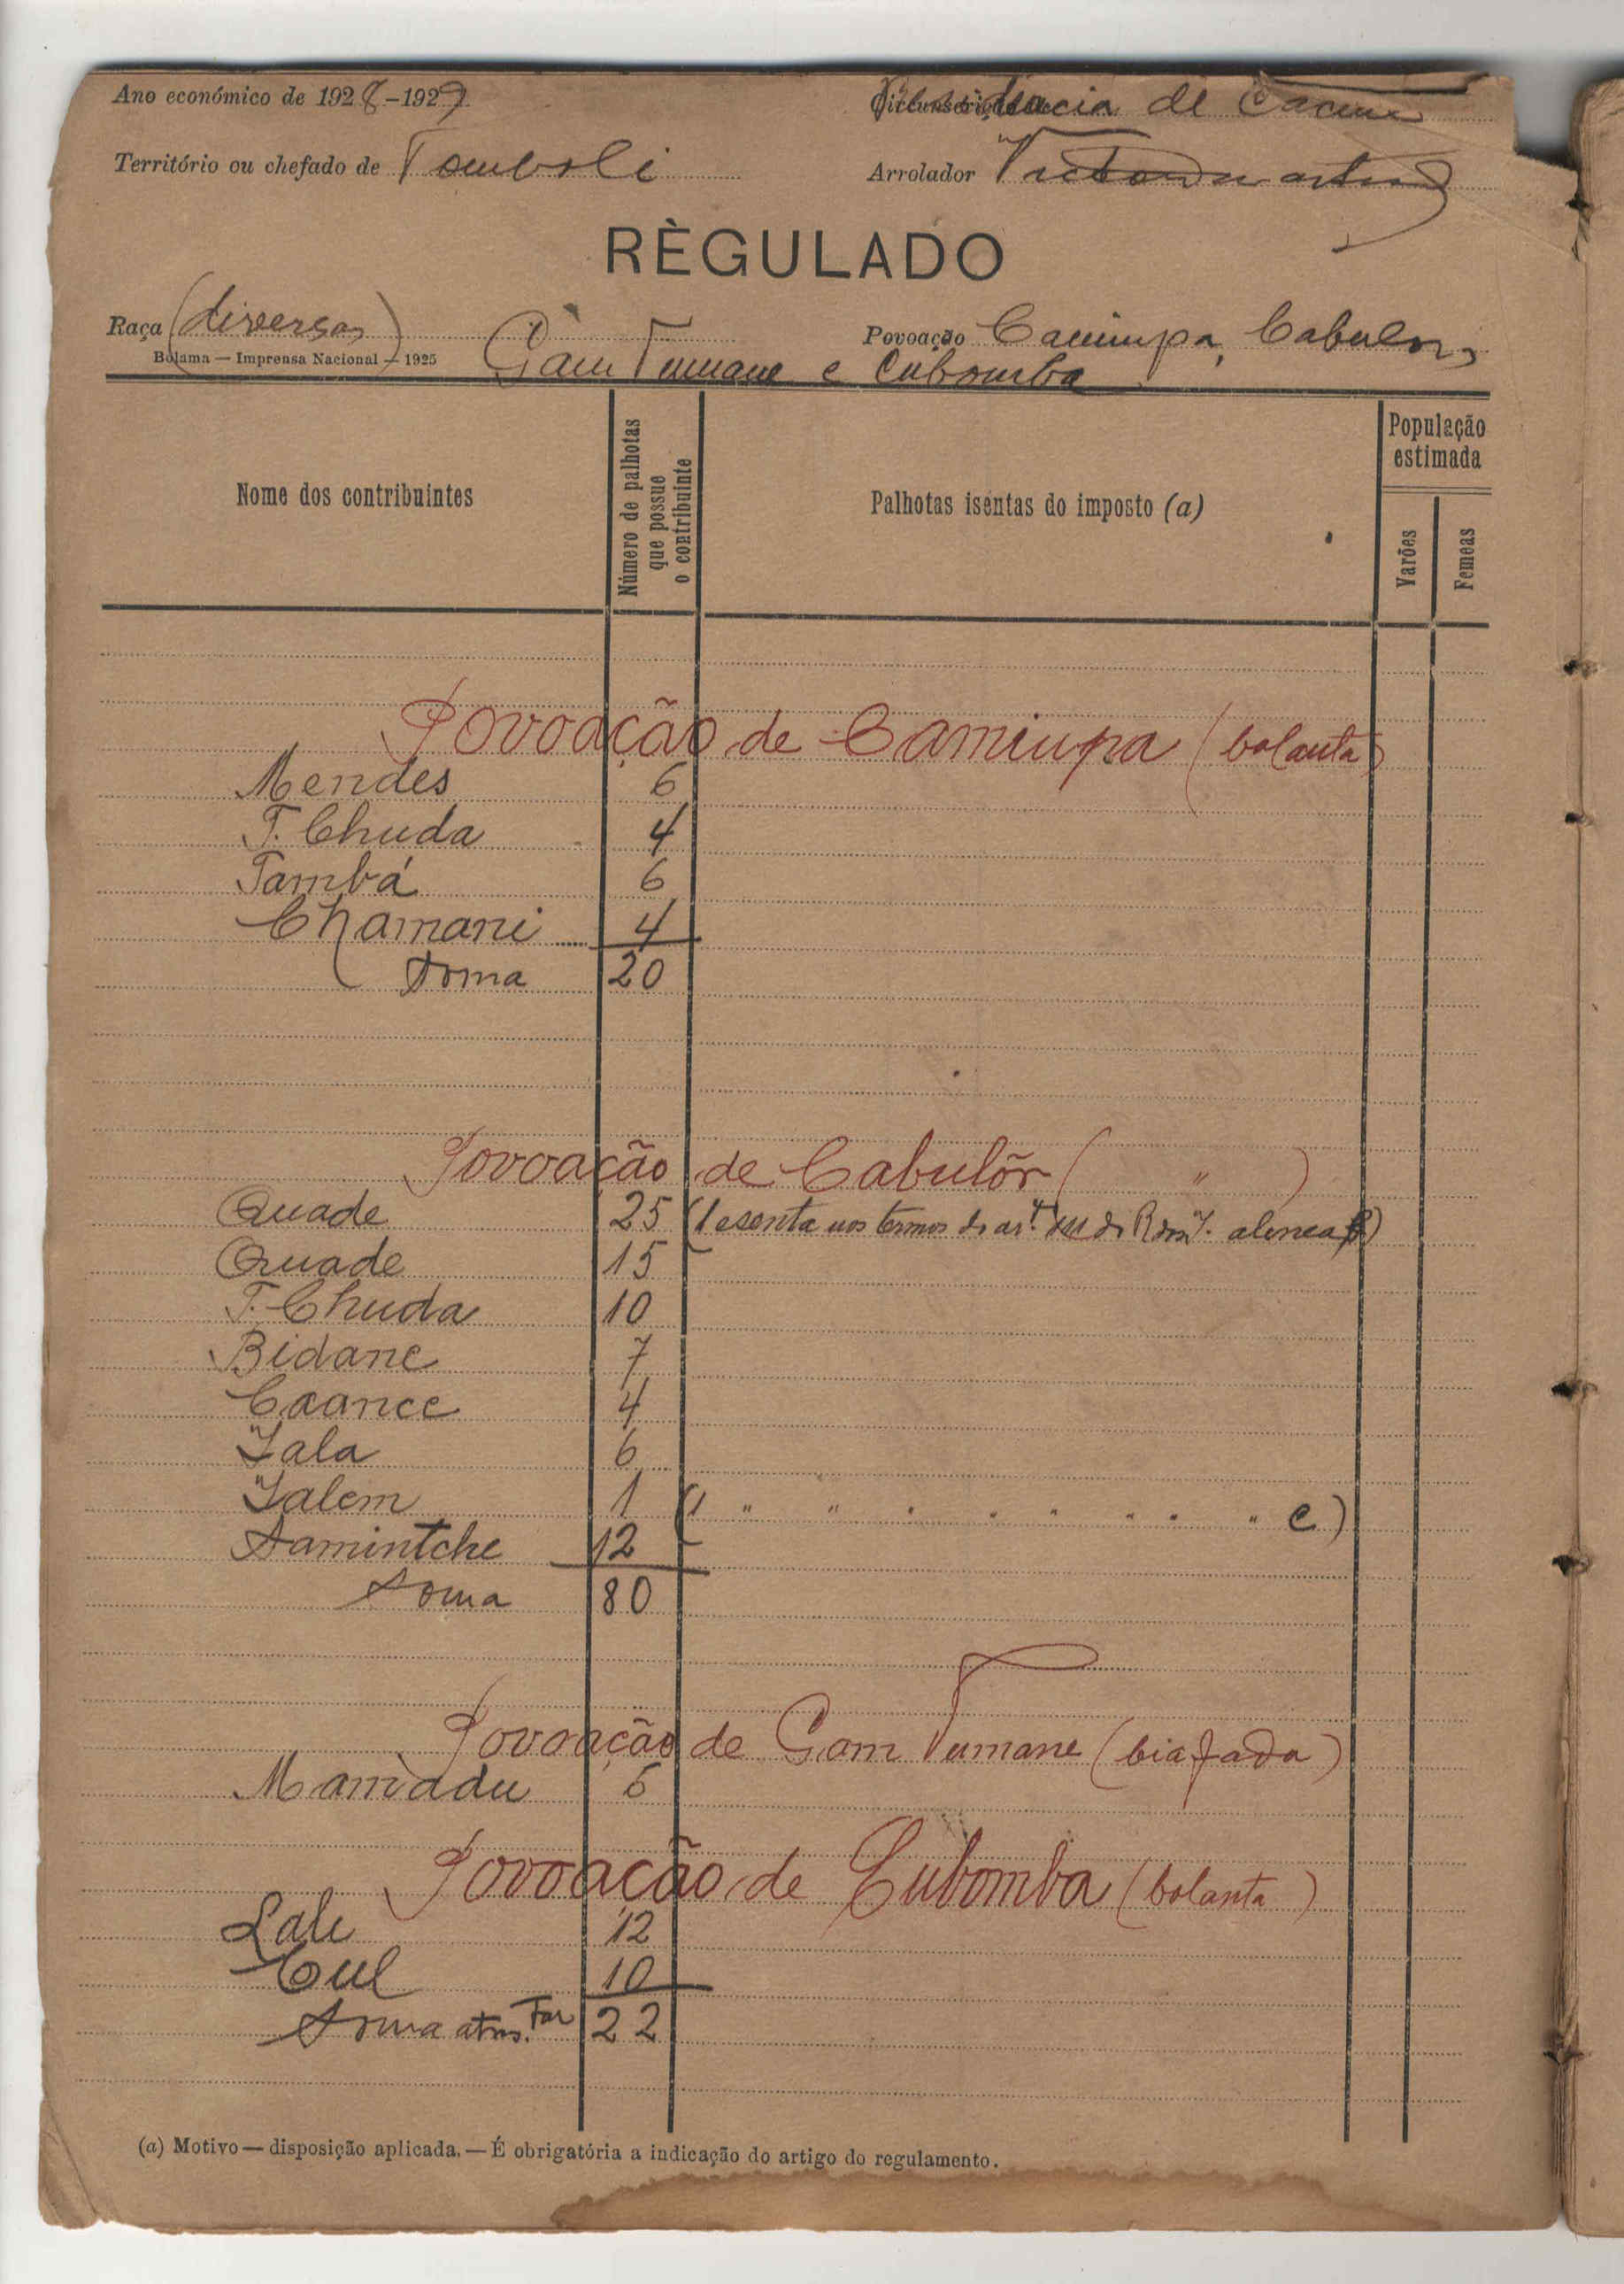 Ano económico de 1928-1929
dencia de Cacine
Território ou chefado de Tomboli
Arrolador Victor Martins
RÈGULADO
Raça (diversas)
Povoação Camiupa, Cabulor,
Bolama — Imprensa Nacional — 1925
Gam Tumane e Cubomba
Nome dos contribuintes
Número de palhotas
que possue
o contribuinte
Palhotas isentas do imposto (a)
População
estimada
Varões
Femeas
Povoação de Camiupa (balanta)
Mendes 6
T. Chuda 4
Tambá 6
Chamani 4
Soma 20
Povoação de Cabulõr ( " )
Quade 25 (1 esenta nos termos do art. do alenea )
Quade 15
T. Chuda 10
Bidane 7
Caance 4
Iala 6
Ialem 1 (1 " " " " " " " " c)
Samintche 12
Soma 80
Povoação de Gam Tumane (biafada)
Mamadu 6
Povoação de Cubomba (balanta)
Lale 12
Cul 10
Soma 22
(a) Motivo — disposição aplicada. — É obrigatória a indicação do artigo do regulamento.